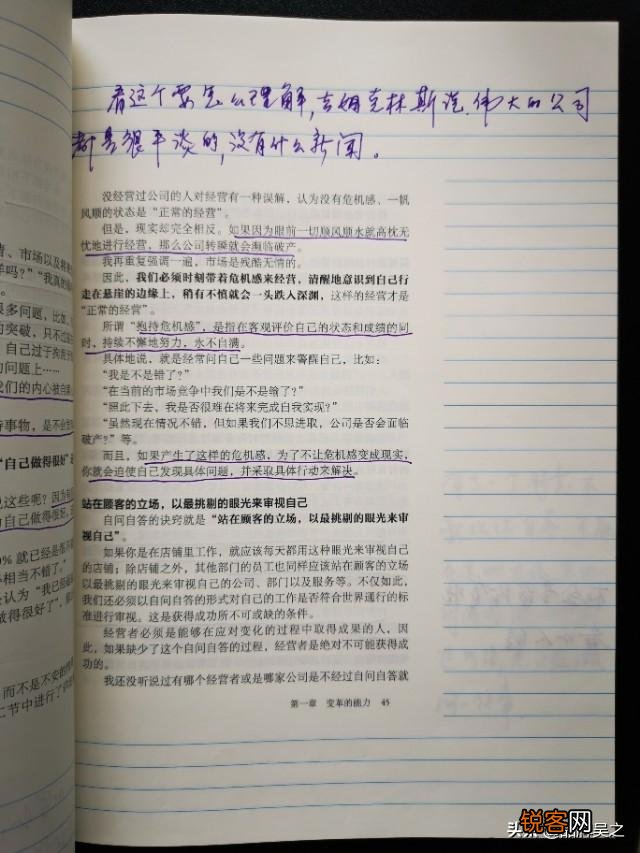 看这个要怎么理解,吉姆克林斯说.伟大的公司
都是很平淡的,没有什么新闻。
没经营过公司的人对经营有一种误解，认为没有危机感、一帆
风顺的状态是“正常的经营”。
但是，现实却完全相反。如果因为眼前一切顺风顺水就高枕无
忧地进行经营，那么公司转瞬就会濒临破产。
我再重复强调一遍，市场是残酷无情的。
因此，我们必须时刻带着危机感来经营，清醒地意识到自己行
走在悬崖的边缘上，稍有不慎就会一头跌入深渊，这样的经营才是
“正常的经营”。
所谓“抱持危机感”，是指在客观评价自己的状态和成绩的同
时，持续不懈地努力，永不自满。
具体地说，就是经常问自己一些问题来警醒自己，比如：
“我是不是错了？”
“在当前的市场竞争中我们是不是输了？”
“照此下去，我是否很难在将来完成自我实现？”
“虽然现在情况不错，但如果我们不思进取，公司是否会面临
破产？”等。
而且，如果产生了这样的危机感，为了不让危机感变成现实，
你就会迫使自己发现具体问题，并采取具体行动来解决。
站在顾客的立场，以最挑剔的眼光来审视自己
自问自答的诀窍就是“站在顾客的立场，以最挑剔的眼光来审
视自己”。
如果你是在店铺里工作，就应该每天都用这种眼光来审视自己
的店铺；除店铺之外，其他部门的员工也同样应该站在顾客的立场
以最挑剔的眼光来审视自己的公司、部门以及服务等。不仅如此，
我们还必须以自问自答的形式对自己的工作是否符合世界通行的标
准进行审视。这是获得成功所不可或缺的条件。
经营者必须是能够在应对变化的过程中取得成果的人，因
此，如果缺少了这个自问自答的过程，经营者是绝对不可能获得成
功的。
我还没听说过有哪个经营者或是哪家公司是不经过自问自答就
第一章 变革的能力 45
、市场以及将
样吗？”“我真的
很多问题，比如，
的突破，只不过
自己过于拘泥于
的问题上……
我们的内心被
事物，是不会
“自己做得很好”
说这些呢？因为
为自己做得很好，
% 就已经是很不
得相当不错了。”
认为“我已经
做得很好了”，
而不是不安的
二节中进行了
锐客网